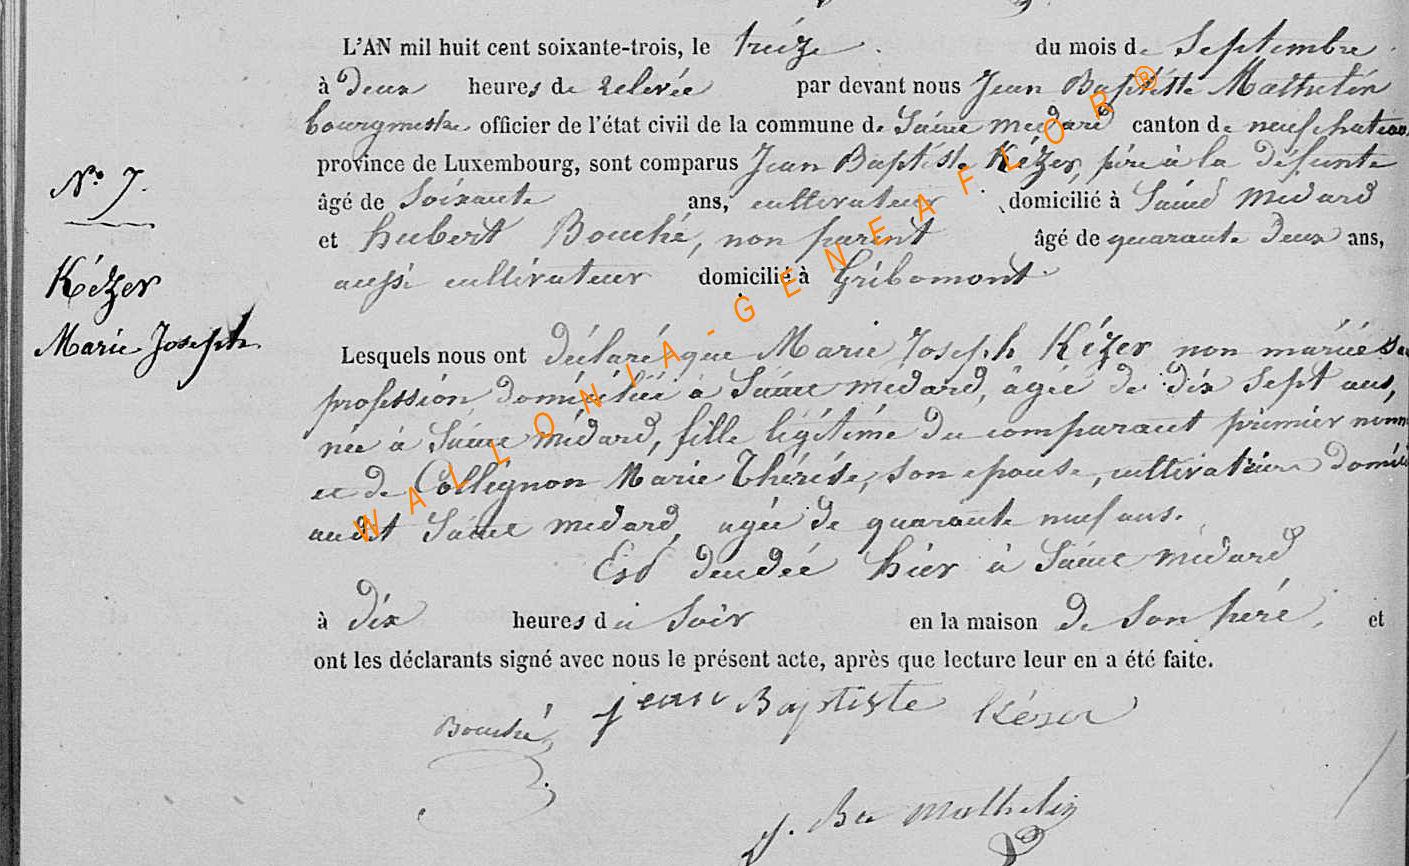 L'AN mil huit cent soixante-trois, le treize du mois de Septembre
à deux heures de relevée par devant nous Jean Baptiste Mathelin
bourgmestre officier de l'état civil de la commune de Saint médard canton de neufchateau
province de Luxembourg, sont comparus Jean Baptiste Kézer, père à la défunte
N° 7.
âgé de Soixante ans, cultivateur domicilié à Saint médard
et hubert Bouché, non parent âgé de quarante deux ans,
Kézer
aussi cultivateur domicilié à Gribomont
Marie Joseph
Lesquels nous ont déclaré que Marie Joseph Kézer non mariée
profession domiciliée à Saint médard, âgée de dix sept ans,
née à Saint médard, fille légitime du comparant premier nommé
et de Collignon Marie Thérèse, son epouse, cultivatrice
audit Saint médard, agée de quarante neuf ans.
Est hier à Saint médard
à dix heures du Soir en la maison de Son père, et
ont les déclarants signé avec nous le présent acte, après que lecture leur en a été faite.
jean Baptiste Kézer
Bouché
j. Bte Mathelin
WALLONIA-GENEAFLOR®